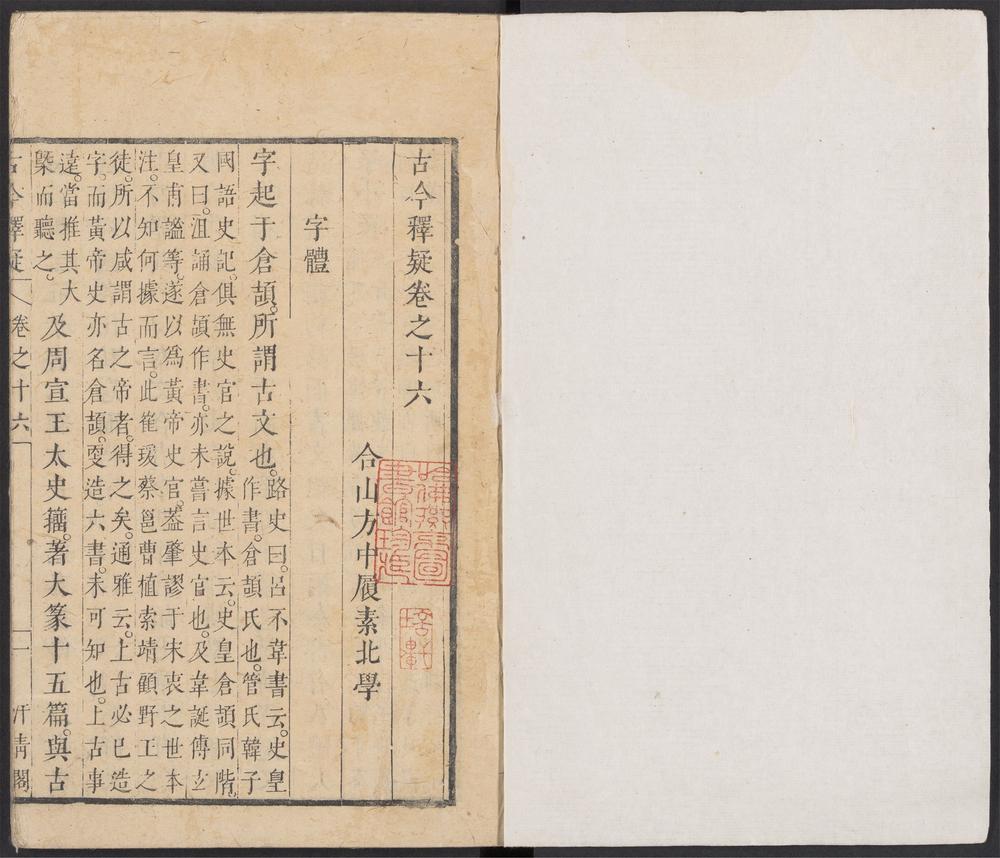 古今釋疑卷之十六
合山方中履素北學
字體
字起于倉頡。所謂古文也。路史曰。呂不韋書云。史皇
作書。倉頡氏也。管氏韓子
國語史記。俱無史官之說。據世本云。史皇倉頡同階。
又曰。沮誦倉頡作書。亦未嘗言史官也。及韋誕傳玄
皇甫謐等。遂以爲黃帝史官。蓋肇謬于宋衷之世本
注。不知何據而言。此崔瑗蔡邕曹植索靖顧野王之
徒。所以咸謂古之帝者。得之矣。通雅云。上古必已造
字。而黃帝史亦名倉頡。更造六書。未可知也。上古事
遠。當推其大
槩而聽之。及周宣王太史籒。著大篆十五篇。與古
古今釋疑 卷之十六 一 汗靑閣